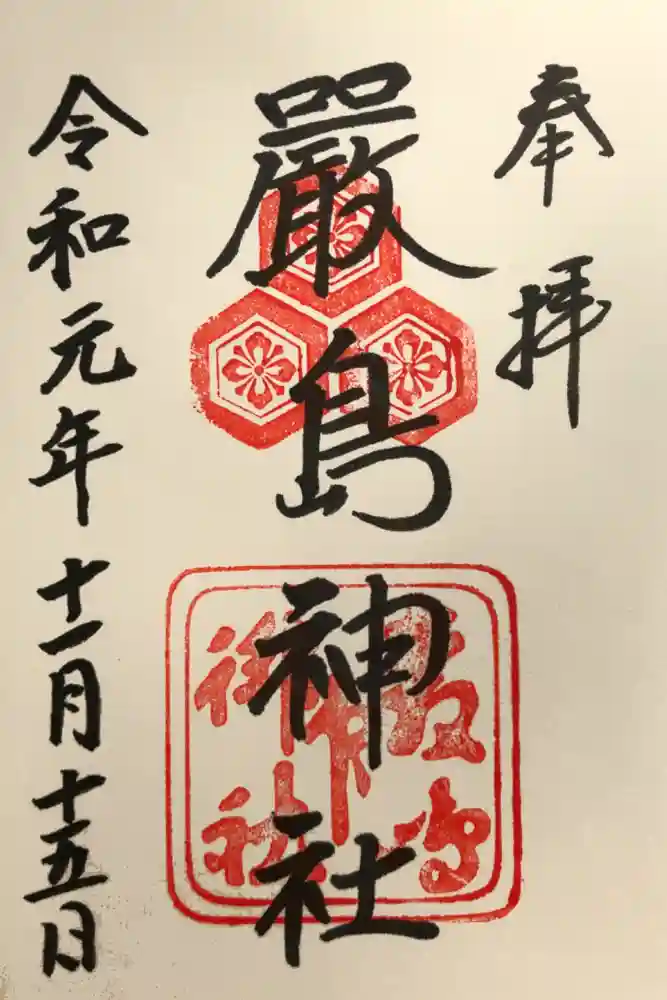 奉拝
嚴島神社
令和元年十一月十五日